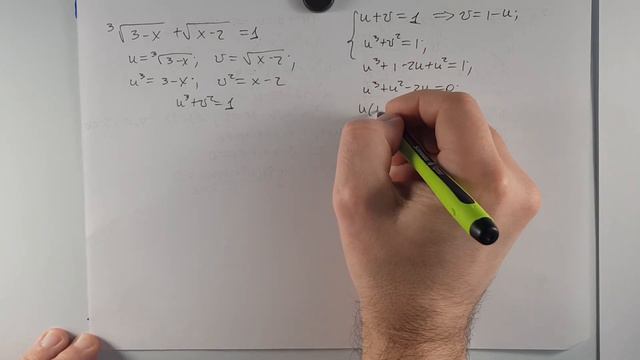 ³√3-x + √x-2 = 1
u = ³√3-x; v = √x-2;
u³ = 3-x; v² = x-2
u³+v²=1
u+v=1 ⇒ v=1-u;
u³+v²=1;
u³+1-2u+u²=1;
u³+u²-2u=0;
u(